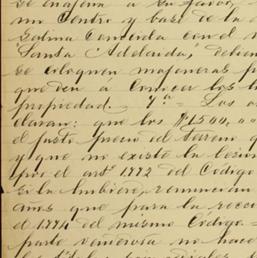 se enajena a su favor,
mo Centro y base de la
Colina Conocida con el n
"Santa Adelaida", debien
se coloquen mojoneras p
que den a Conocer los l
propiedad. 7ª - Los o
claran: que los $1500,00
el justo precio del terreno q
y que no existe la lesion
por el artº 1772 del Código
si la hubiere, renuncian
años que para la resci
el 1774 del mismo Código.=
parte vendedora no hace